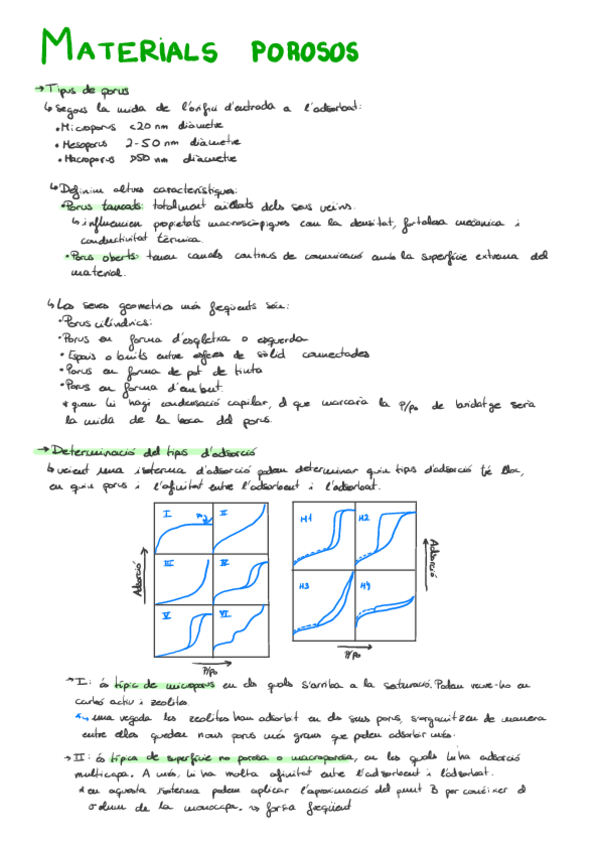 MATERIALS POROSOS
→ Tipus de porus
↳ Segons la mida de l'orifici d'entrada a l'adsorbat:
• Microporus <20 nm diàmetre
• Mesoporus 2-50 nm diàmetre
• Macroporus >50 nm diàmetre
↳ Definim altres característiques:
• Porus tancats: totalment aïllats dels seus veïns.
↳ influencien propietats macroscòpiques com la densitat, fortalesa mecànica i
conductivitat tèrmica.
• Porus oberts: tenen canals continus de comunicació amb la superfície externa del
material.
↳ Les seves geometries més freqüents són:
• Porus cilíndrics:
• Porus en forma d'escletxa o esquerda
• Espais o buits entre esferes de sòlid connectades
• Porus en forma de pot de tinta
• Porus en forma d'embut.
* quan hi hagi condensació capilar, el que marcarà la P/Po de bridatge serà
la mida de la boca del porus.
→ Determinació del tipus d'adsorció
↳ veient una isoterma d'adsorció podem determinar quin tipus d'adsorció té lloc,
en quin porus i l'afinitat entre l'adsorbent i l'adsorbat.
I II
III IV
V VI
Adsorció
P/Po
H1 H2
H3 H4
Adsorció
P/Po
→ I: és típic de microporus en els quals s'arriba a la saturació. Podem veure-ho en
carbó actiu i zeolites.
↳ una vegada les zeolites han adsorbit en els seus porus, s'organitzen de manera
entre elles queden nous porus més grans que poden adsorbir més.
→ II: és típica de superfície no porosa o macroporosa, en les quals hi ha adsorció
multicapa. A més, hi ha molta afinitat entre l'adsorbent i l'adsorbat.
* en aquesta isoterma podem aplicar l'aproximació del punt B per conèixer el
volum de la monocapa. → força freqüent